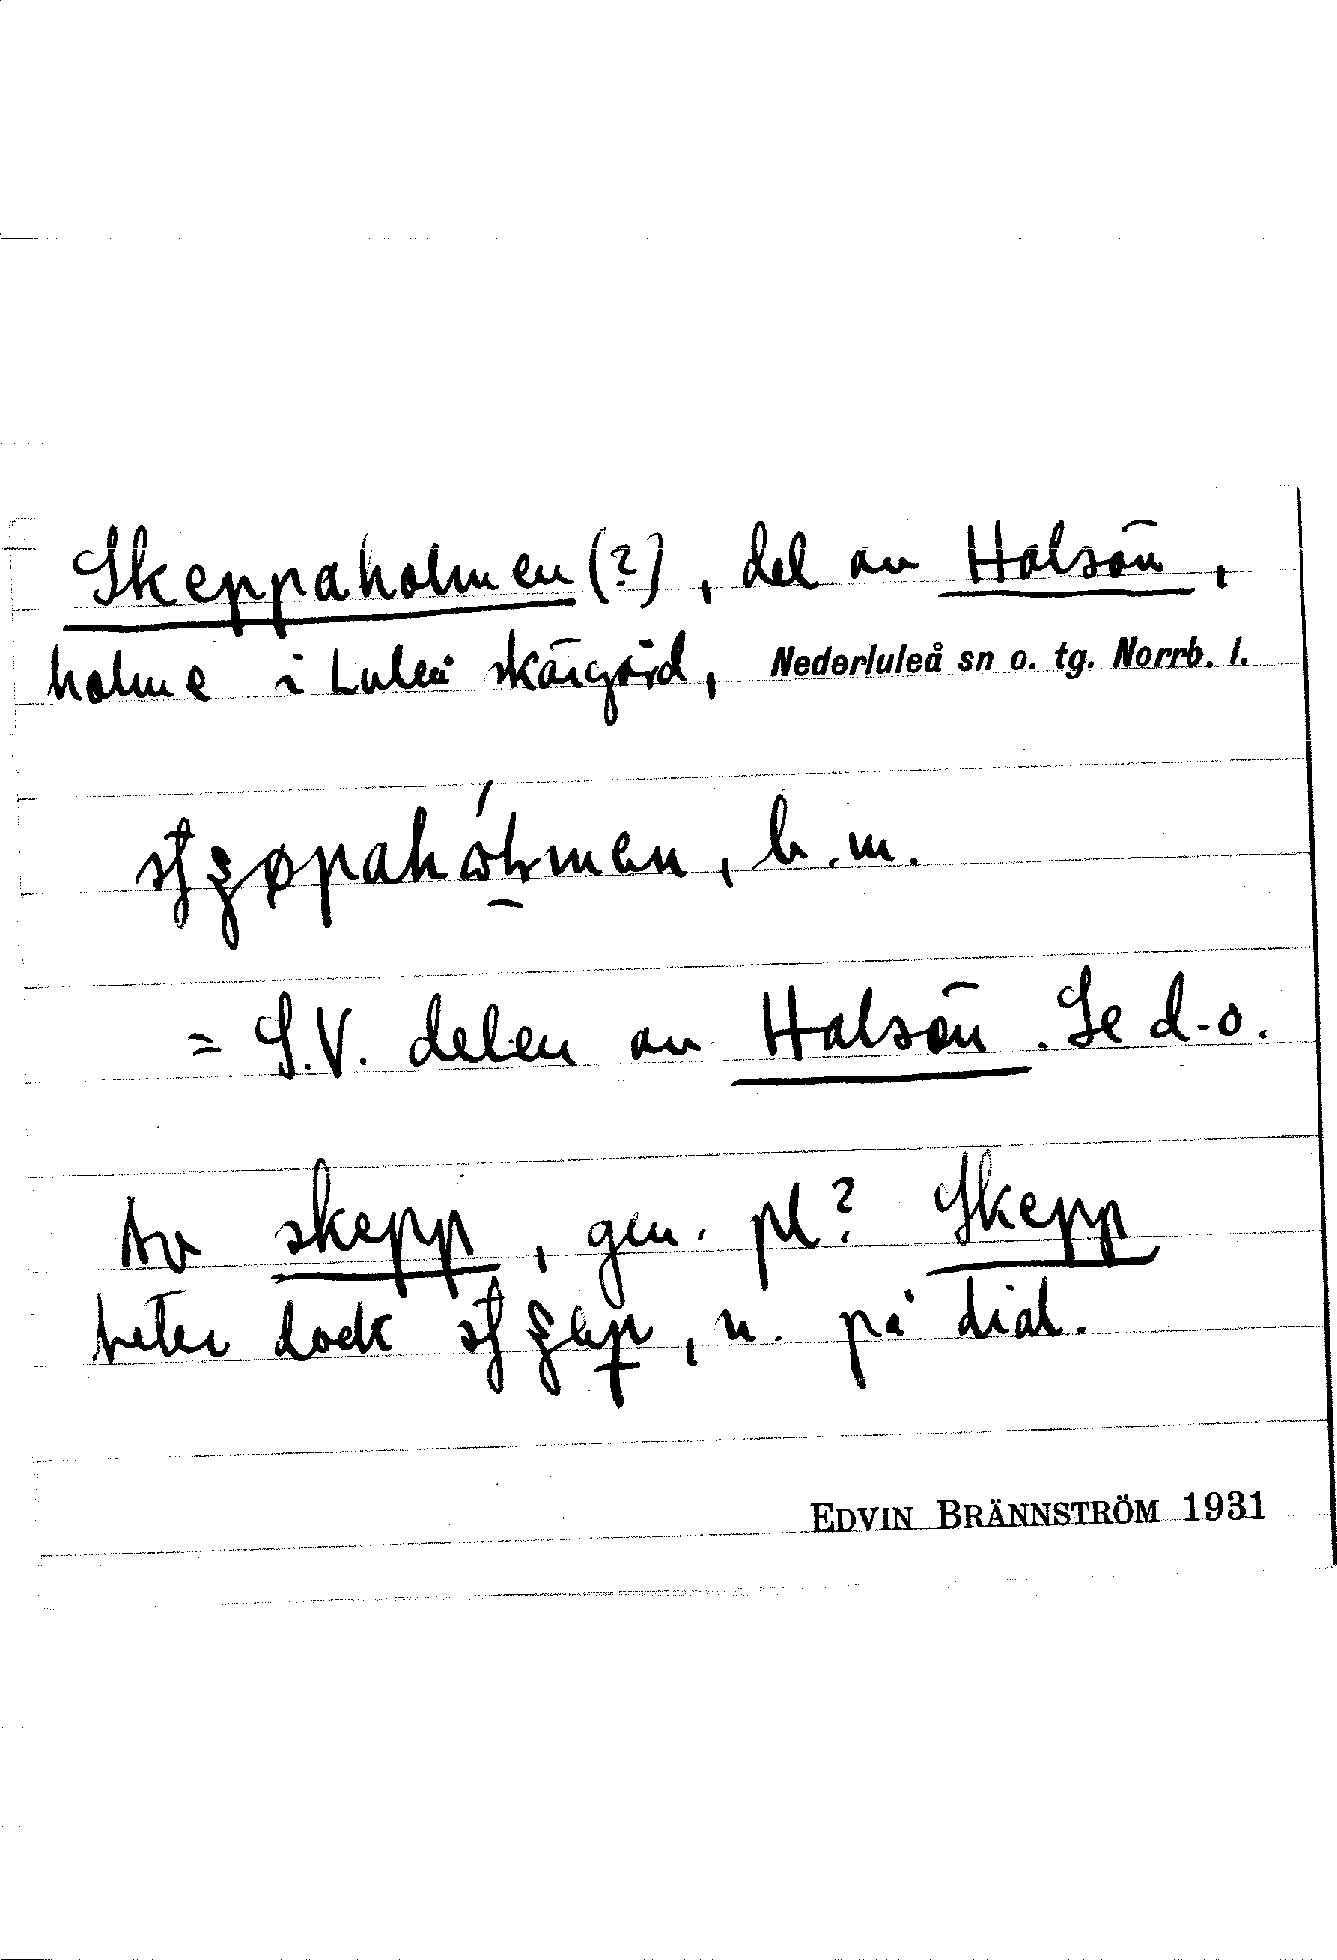 Skeppaholmen (?), del av Halsön,
holme i Luleå skärgård, Nederluleå sn o. tg. Norrb. l.
, b. m.
= S.V. delen av Halsön. Se d-o.
Av skepp, gen. pl? Skepp
heter dock , n. på dial.
EDVIN BRÄNNSTRÖM 1931